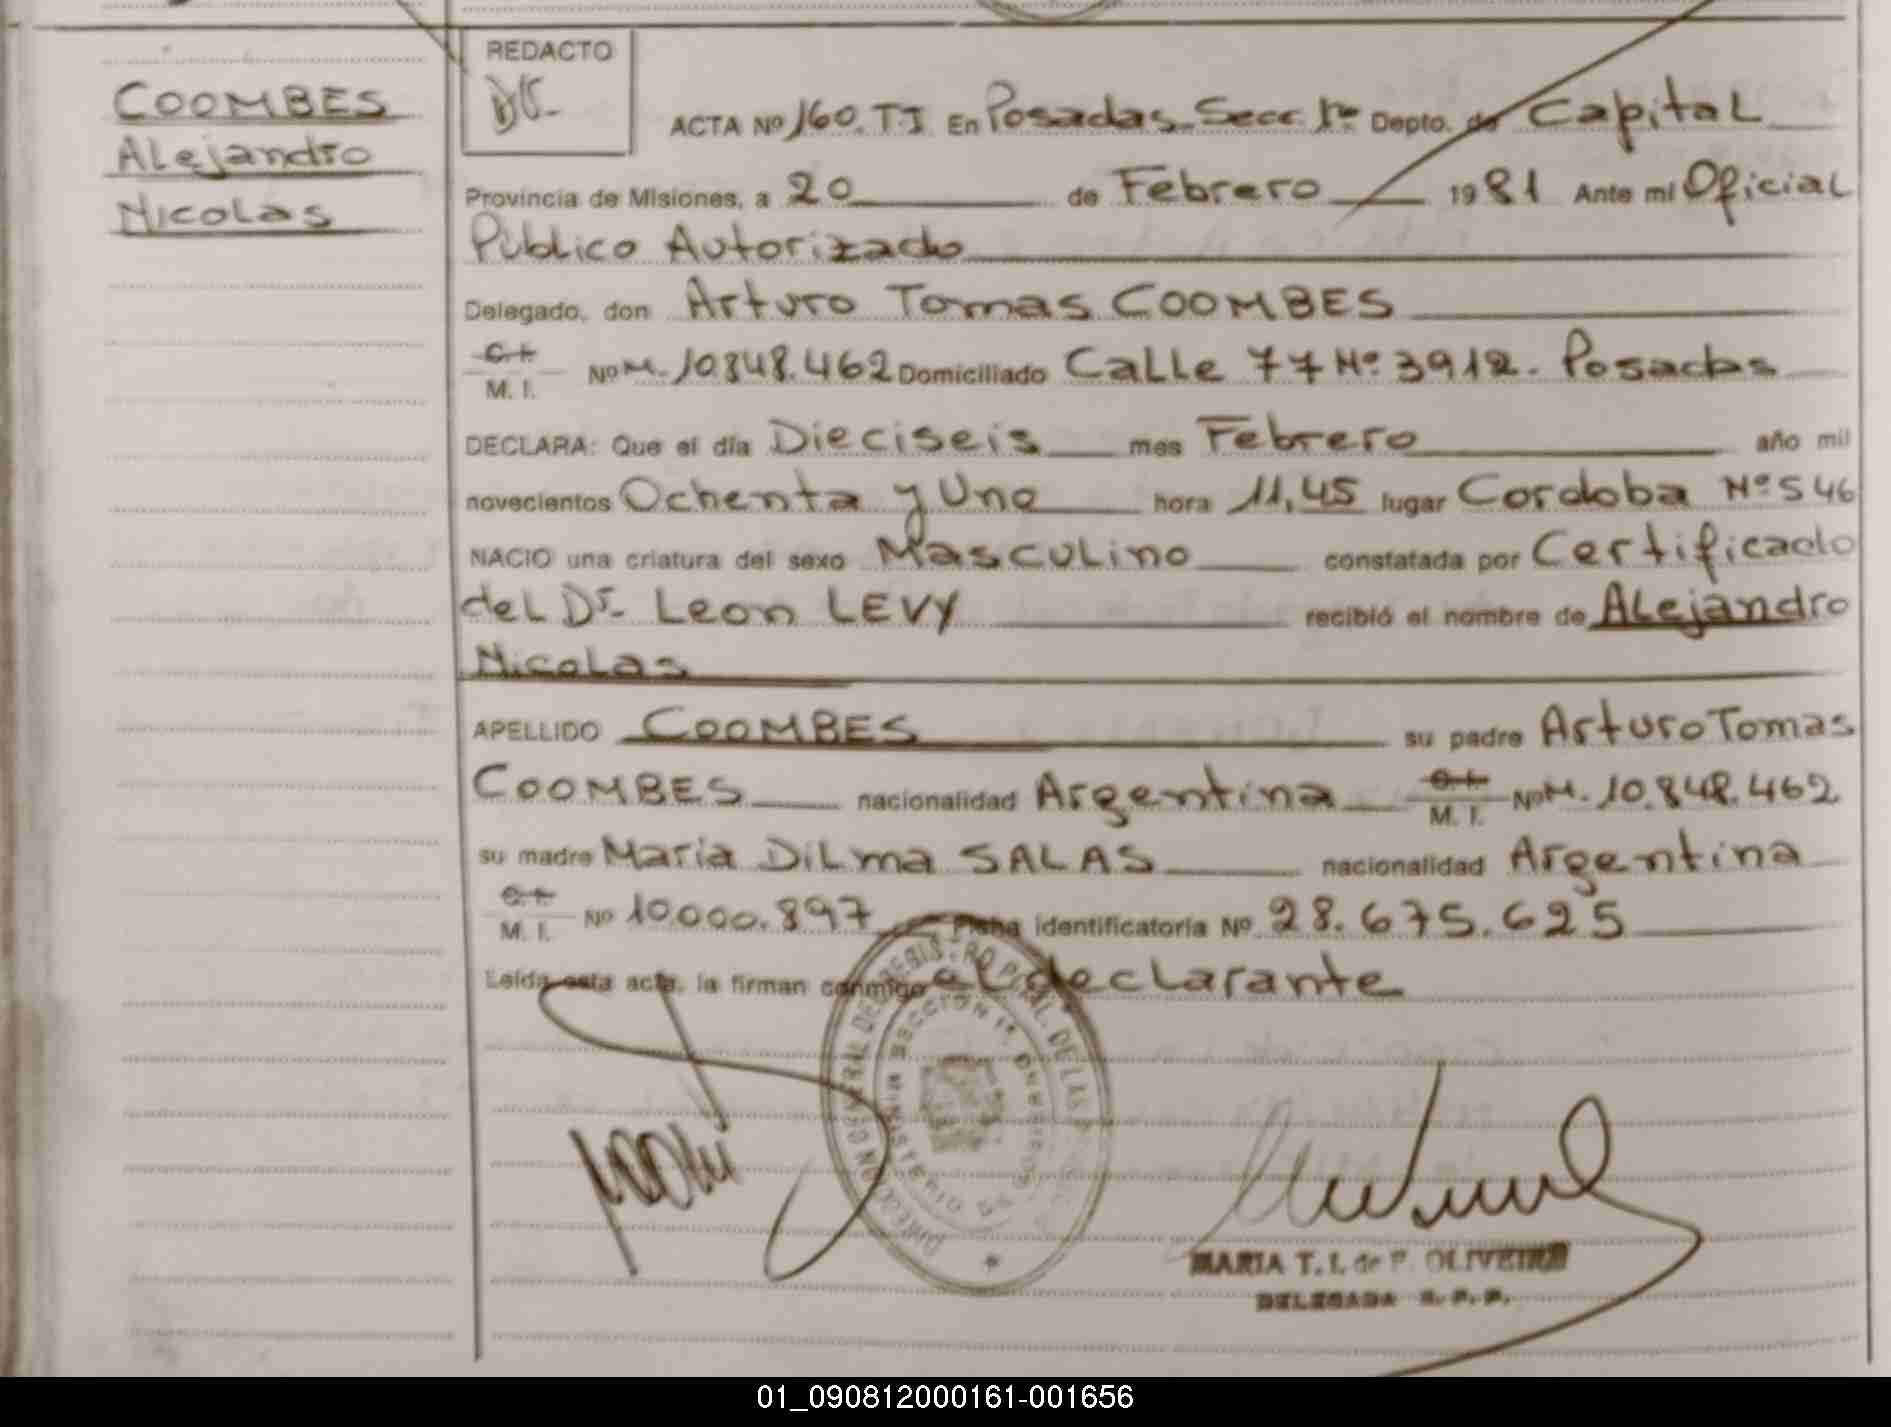 COOMBES
Alejandro
Nicolas
REDACTO
ACTA Nº 160. TI En Posadas. Secc. 1ª Depto. de Capital
Provincia de Misiones, a 20 de Febrero 1981 Ante mi Oficial
Público Autorizado
Delegado, don Arturo Tomas COOMBES
C. I.
M. I. Nº M. 10.848.462 Domiciliado Calle 77 Nº 3912. Posadas
DECLARA: Que el día Dieciseis mes Febrero año mil
novecientos Ochenta y Uno hora 11,45 lugar Cordoba Nº 546
NACIO una criatura del sexo Masculino constatada por Certificado
del Dr. Leon LEVY recibió el nombre de Alejandro
Nicolas
APELLIDO COOMBES su padre Arturo Tomas
COOMBES nacionalidad Argentina C. I. M. I. Nº M. 10.848.462
su madre Maria Dilma SALAS nacionalidad Argentina
C. I.
M. I. Nº 10.000.897 Ficha identificatoria Nº 28.675.625
Leída esta acta, la firman conmigo el declarante
MARIA T. I. de P. OLIVEIRA
DELEGADA R. P. P.
01_090812000161-001656